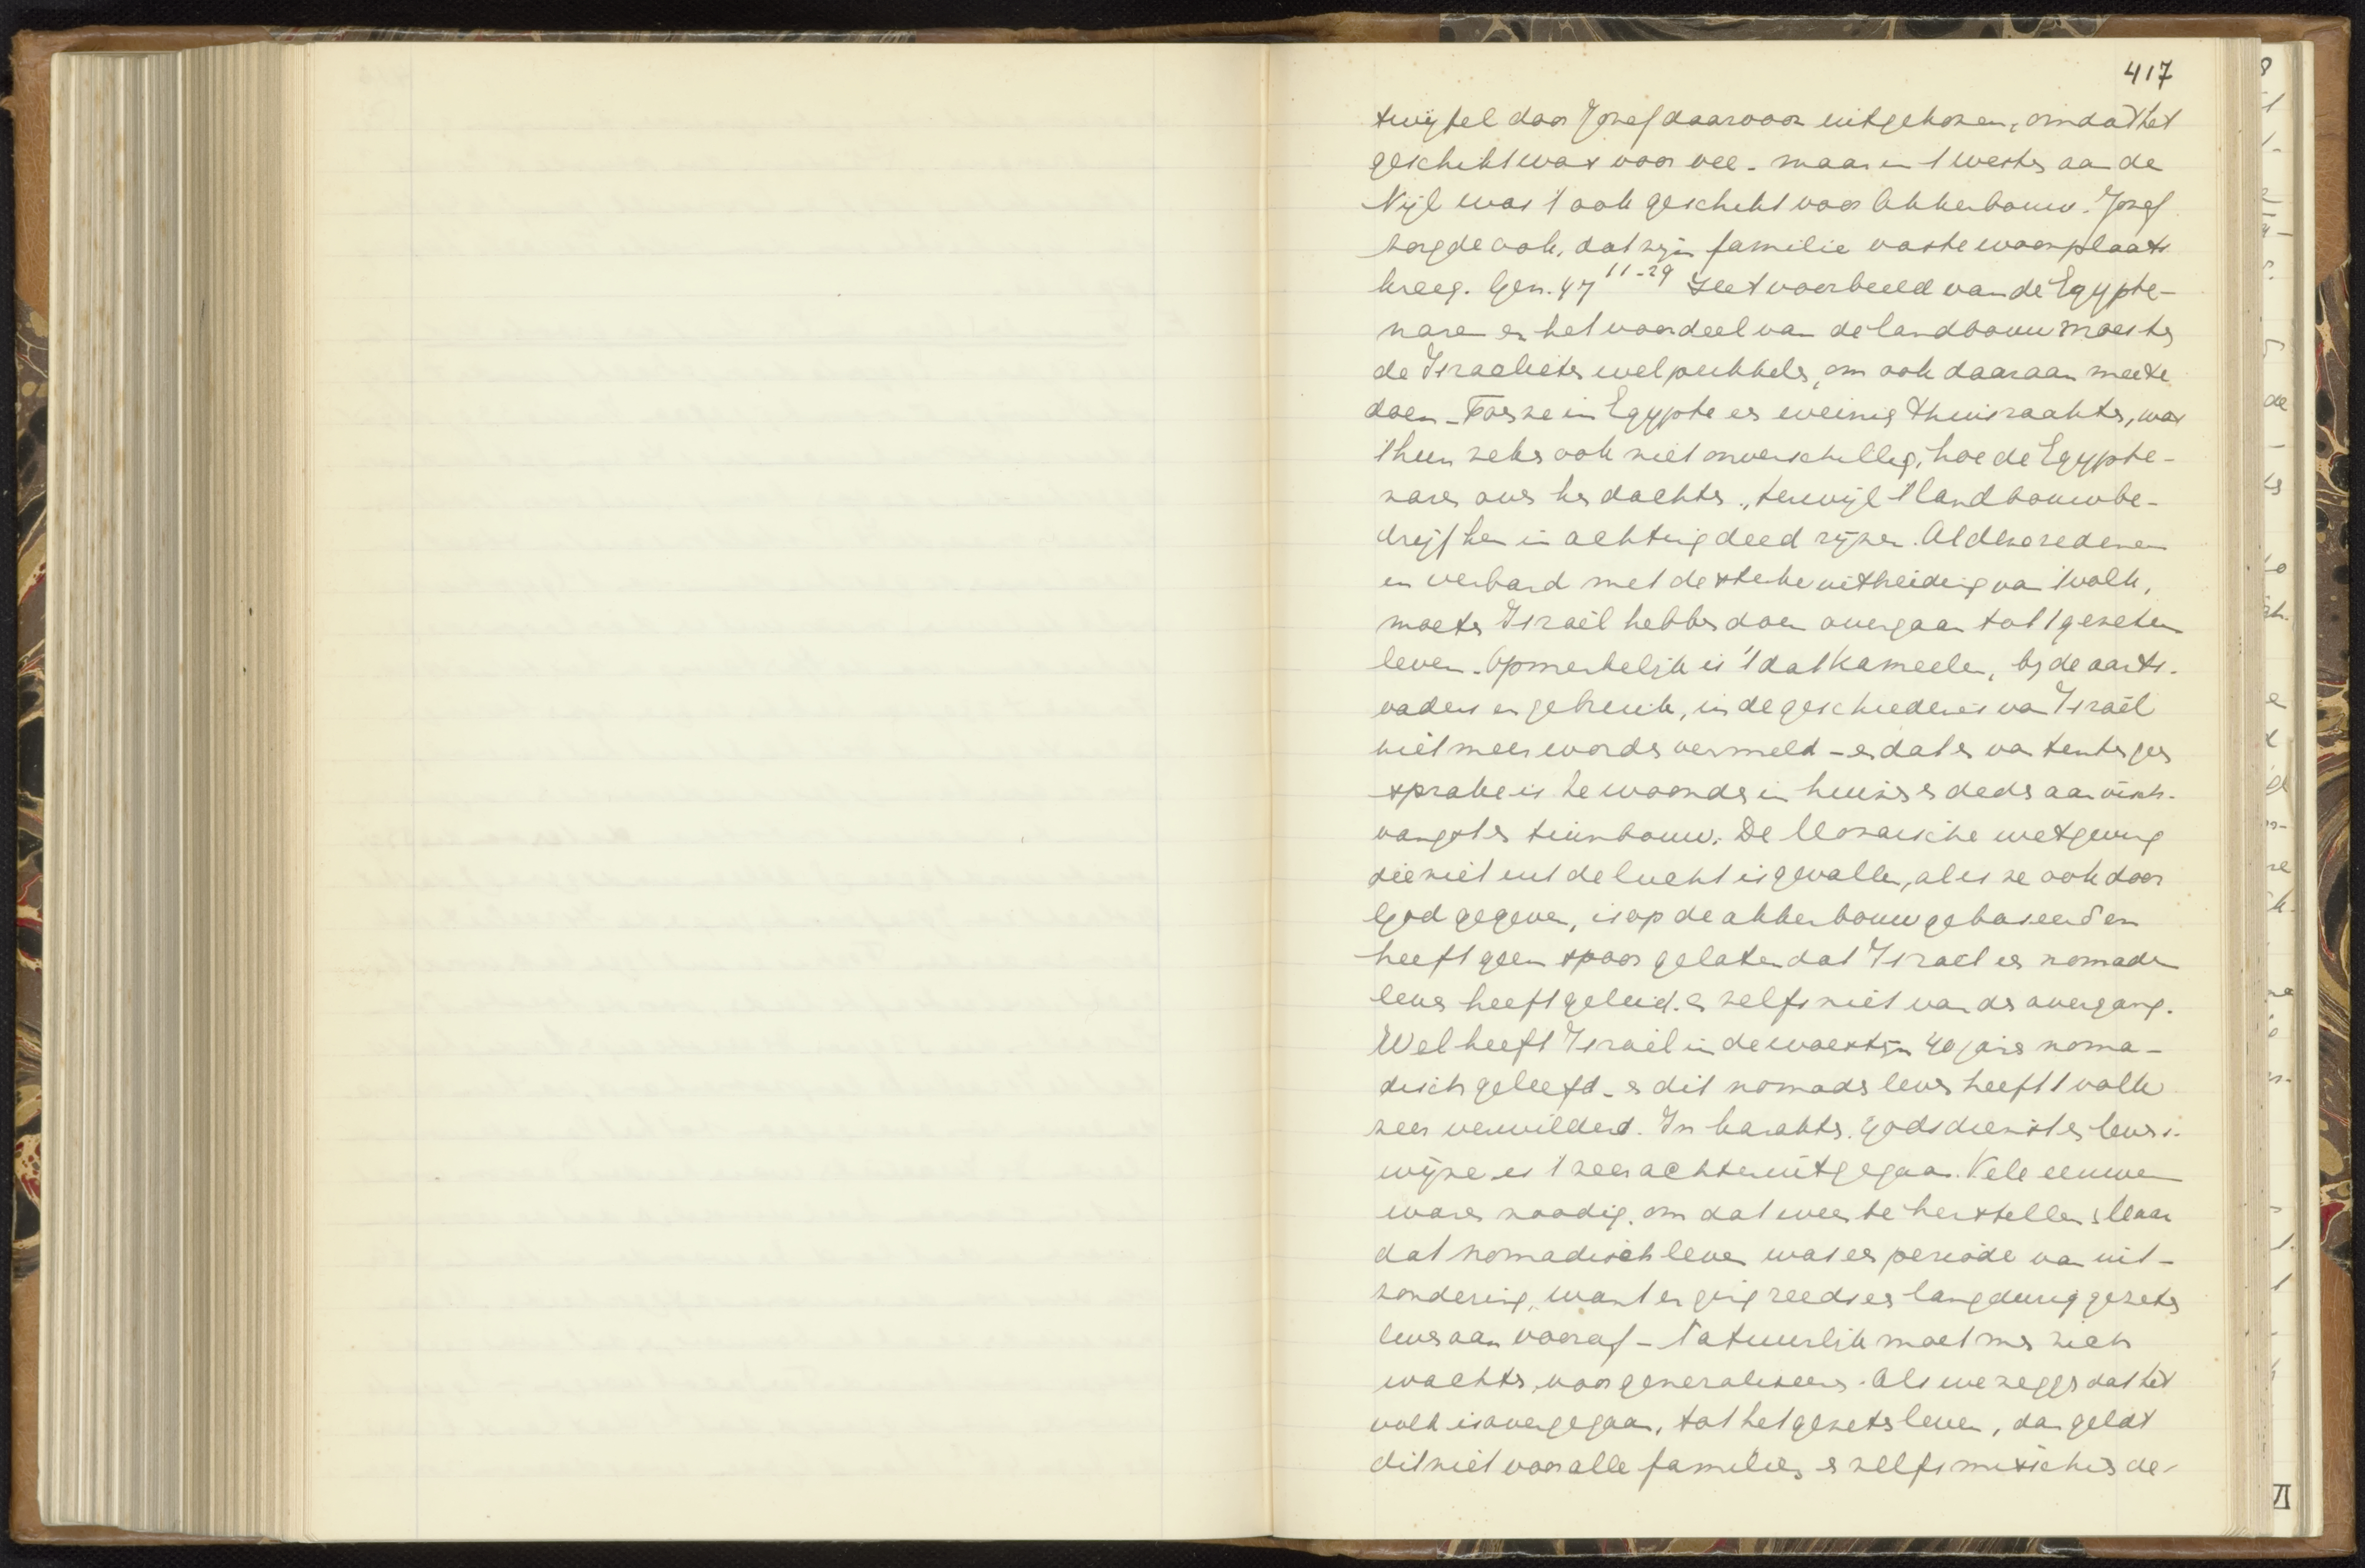 417
twijfel door Jozef daarvoor uitgekozen, omdat het
geschikt was voor vee - maar in 't westen aan de
Nijl was 't ook geschikt voor akkerbouw. Jozef
zorgde ook, dat zijn familie vaste woonplaats
kreeg. Gen. 47 11-29 Het voorbeeld van de Egypte-
naren en het voordeel van de landbouw moesten
de Israelieten wel prikkelen, om ook daaraan mee te
doen - Toen ze in Egypte er weinig thuisraakten, was
't hun zeker ook niet onverschillig, hoe de Egypte-
naren over hen dachten, terwijl 't landbouwbe-
drijf hen in achting deed rijzen. Al deze redenen
in verband met de sterke uitbreiding van 't volk,
moeten Israël hebben doen overgaan tot 't gezeten
leven. Opmerkelijk is 't dat kameelen, bij de aarts-
vaders in gebruik, in de geschiedenis van Israël
niet meer worden vermeld - en dat er van tenten geen
sprake is ze woonden in huizen en deden aan visch-
vangst en tuinbouw. De Mozaische wetgeving
die niet uit de lucht is gevallen, al is ze ook door
God gegeven, is op de akkerbouw gebaseerd en
heeft geen spoor gelaten dat Israel een nomaden
leven heeft geleid. en zelfs niet van de overgang.
Wel heeft Israël in de woestijn 40 jaren noma-
disch geleefd - en dit nomaden leven heeft 't volk
zeer verwilderd. In karakter, godsdienst en levens-
wijze is 't zeer achteruitgegaan. Vele eeuwen
waren noodig, om dat weer te herstellen. Maar
dat nomadisch leven was een periode van uit-
zondering, want er ging reeds een langdurig gezeten
leven aan vooraf - Natuurlijk moet men zich
wachten voor generaliseeren. Als we zeggen dat het
volk is overgegaan, tot het gezeten leven, dan geldt
dit niet voor alle families, en zelfs misschien de